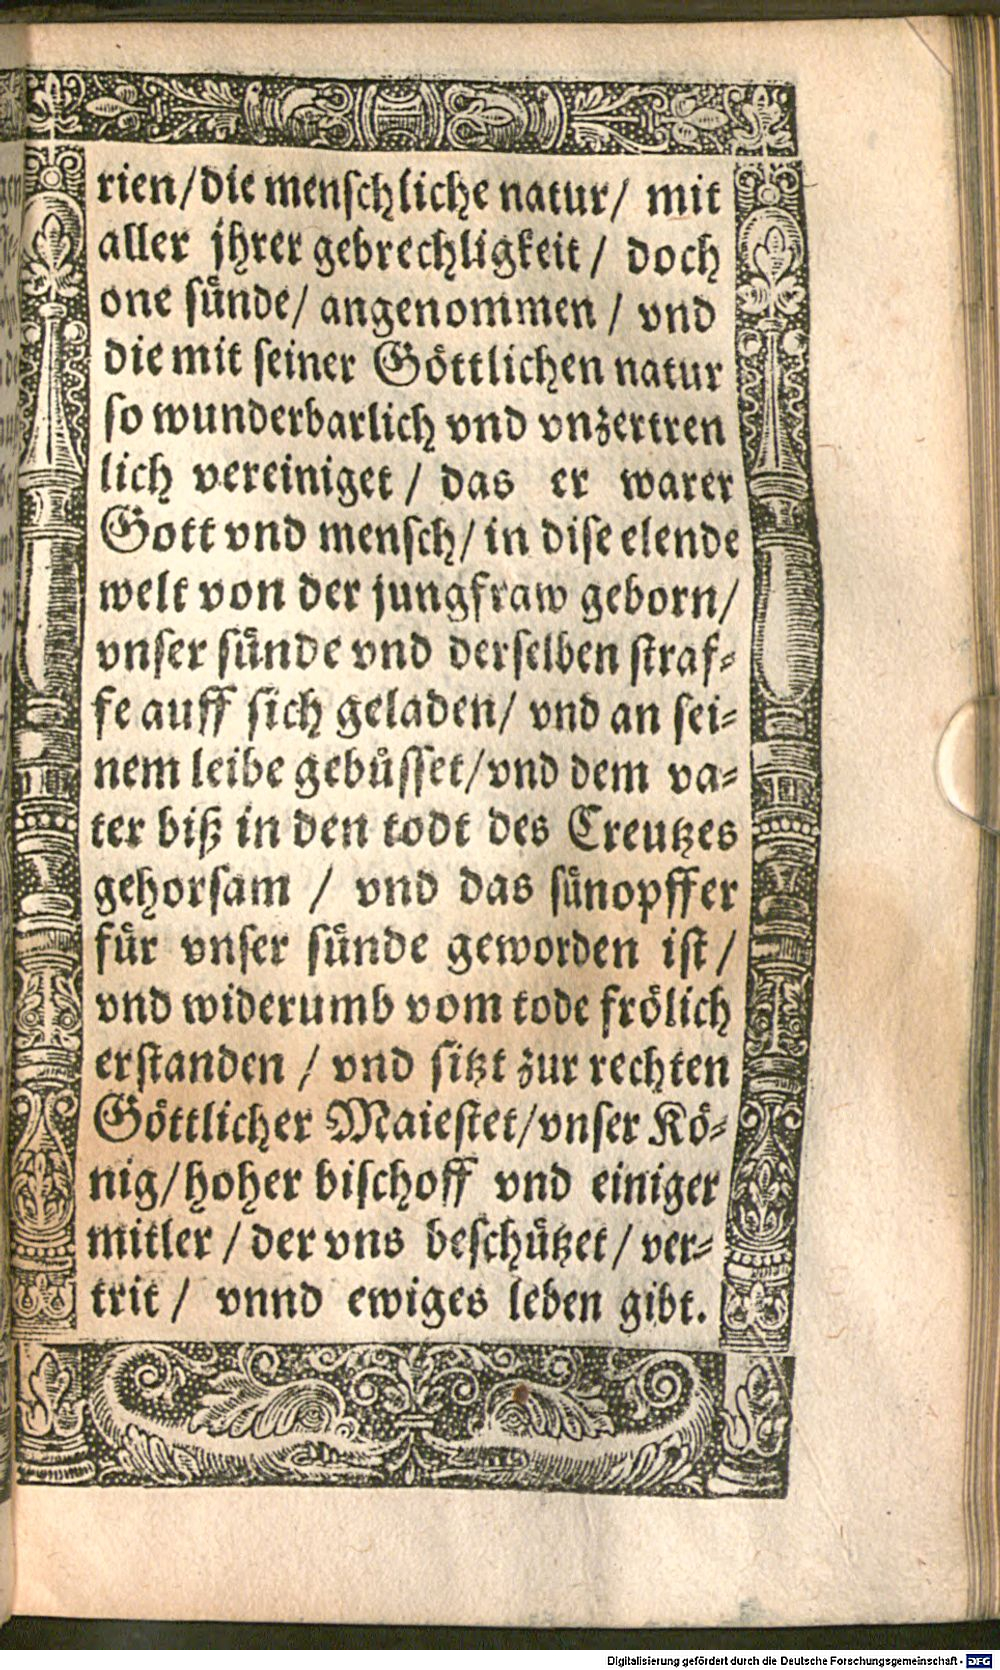 rien/die menschliche natur/ mit
aller jhrer gebrechligkeit / doch
one sünde/ angenommen / vnd
die mit seiner Göttlichen natur
so wunderbarlich vnd vnzertren
lich vereiniget / das er warer
Gott vnd mensch/ in dise elende
welt von der jungfraw geborn/
vnser sünde vnd derselben straf-
fe auff sich geladen/ vnd an sei-
nem leibe gebüsset/vnd dem va-
ter biß in den todt des Creutzes
gehorsam / vnd das sünopffer
für vnser sünde geworden ist /
vnd widerumb vom tode frölich
erstanden / vnd sitzt zur rechten
Göttlicher Maiestet/vnser Kö-
nig/hoher bischoff vnd einiger
mitler / der vns beschützet / ver-
trit / vnnd ewiges leben gibt.
Digitalisierung gefördert durch die Deutsche Forschungsgemeinschaft - DFG